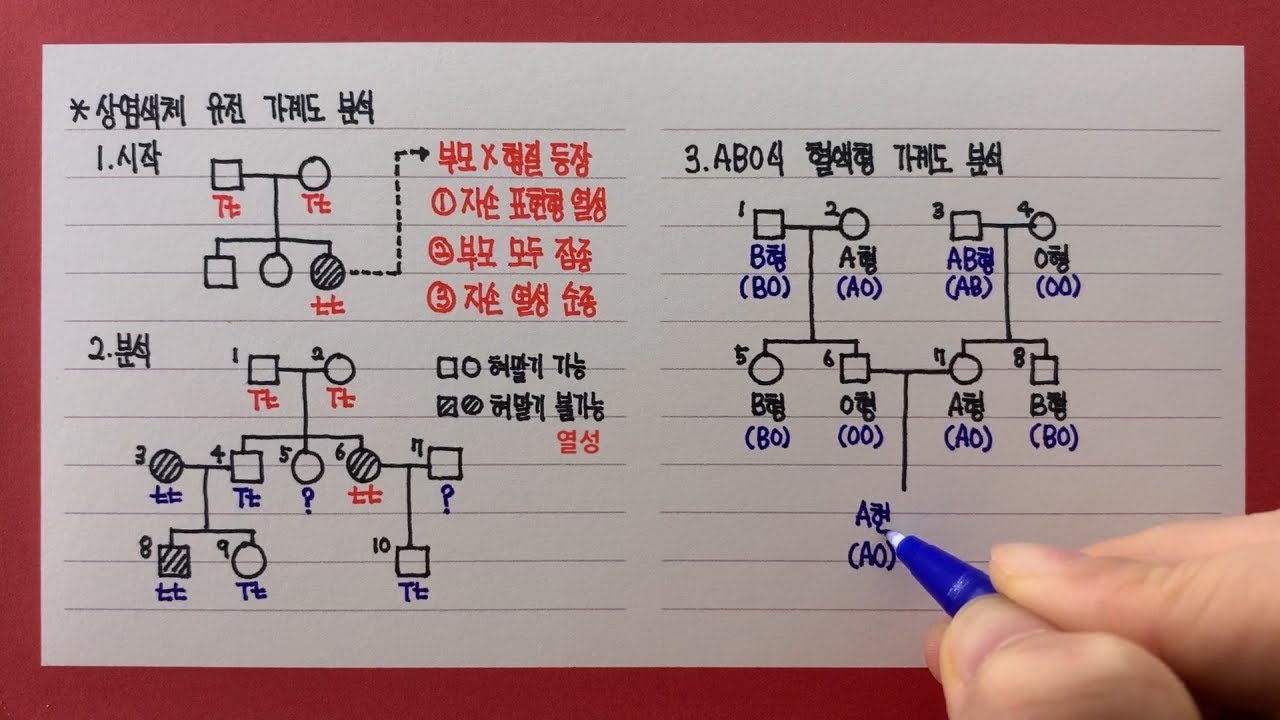 * 상염색체 유전 가계도 분석
1. 시작
Tt Tt
tt
부모 X 형질 등장
① 자손 표현형 열성
② 부모 모두 잡종
③ 자손 열성 순종
2. 분석
1 2
Tt Tt
□○ 혀말기 가능
혀말기 불가능
열성
3 4 5 6 7
tt Tt ? tt ?
8 9 10
tt Tt Tt
3. ABO식 혈액형 가계도 분석
1 2 3 4
B형 A형 AB형 O형
(BO) (AO) (AB) (OO)
5 6 7 8
B형 O형 A형 B형
(BO) (OO) (AO) (BO)
A현
(AO)